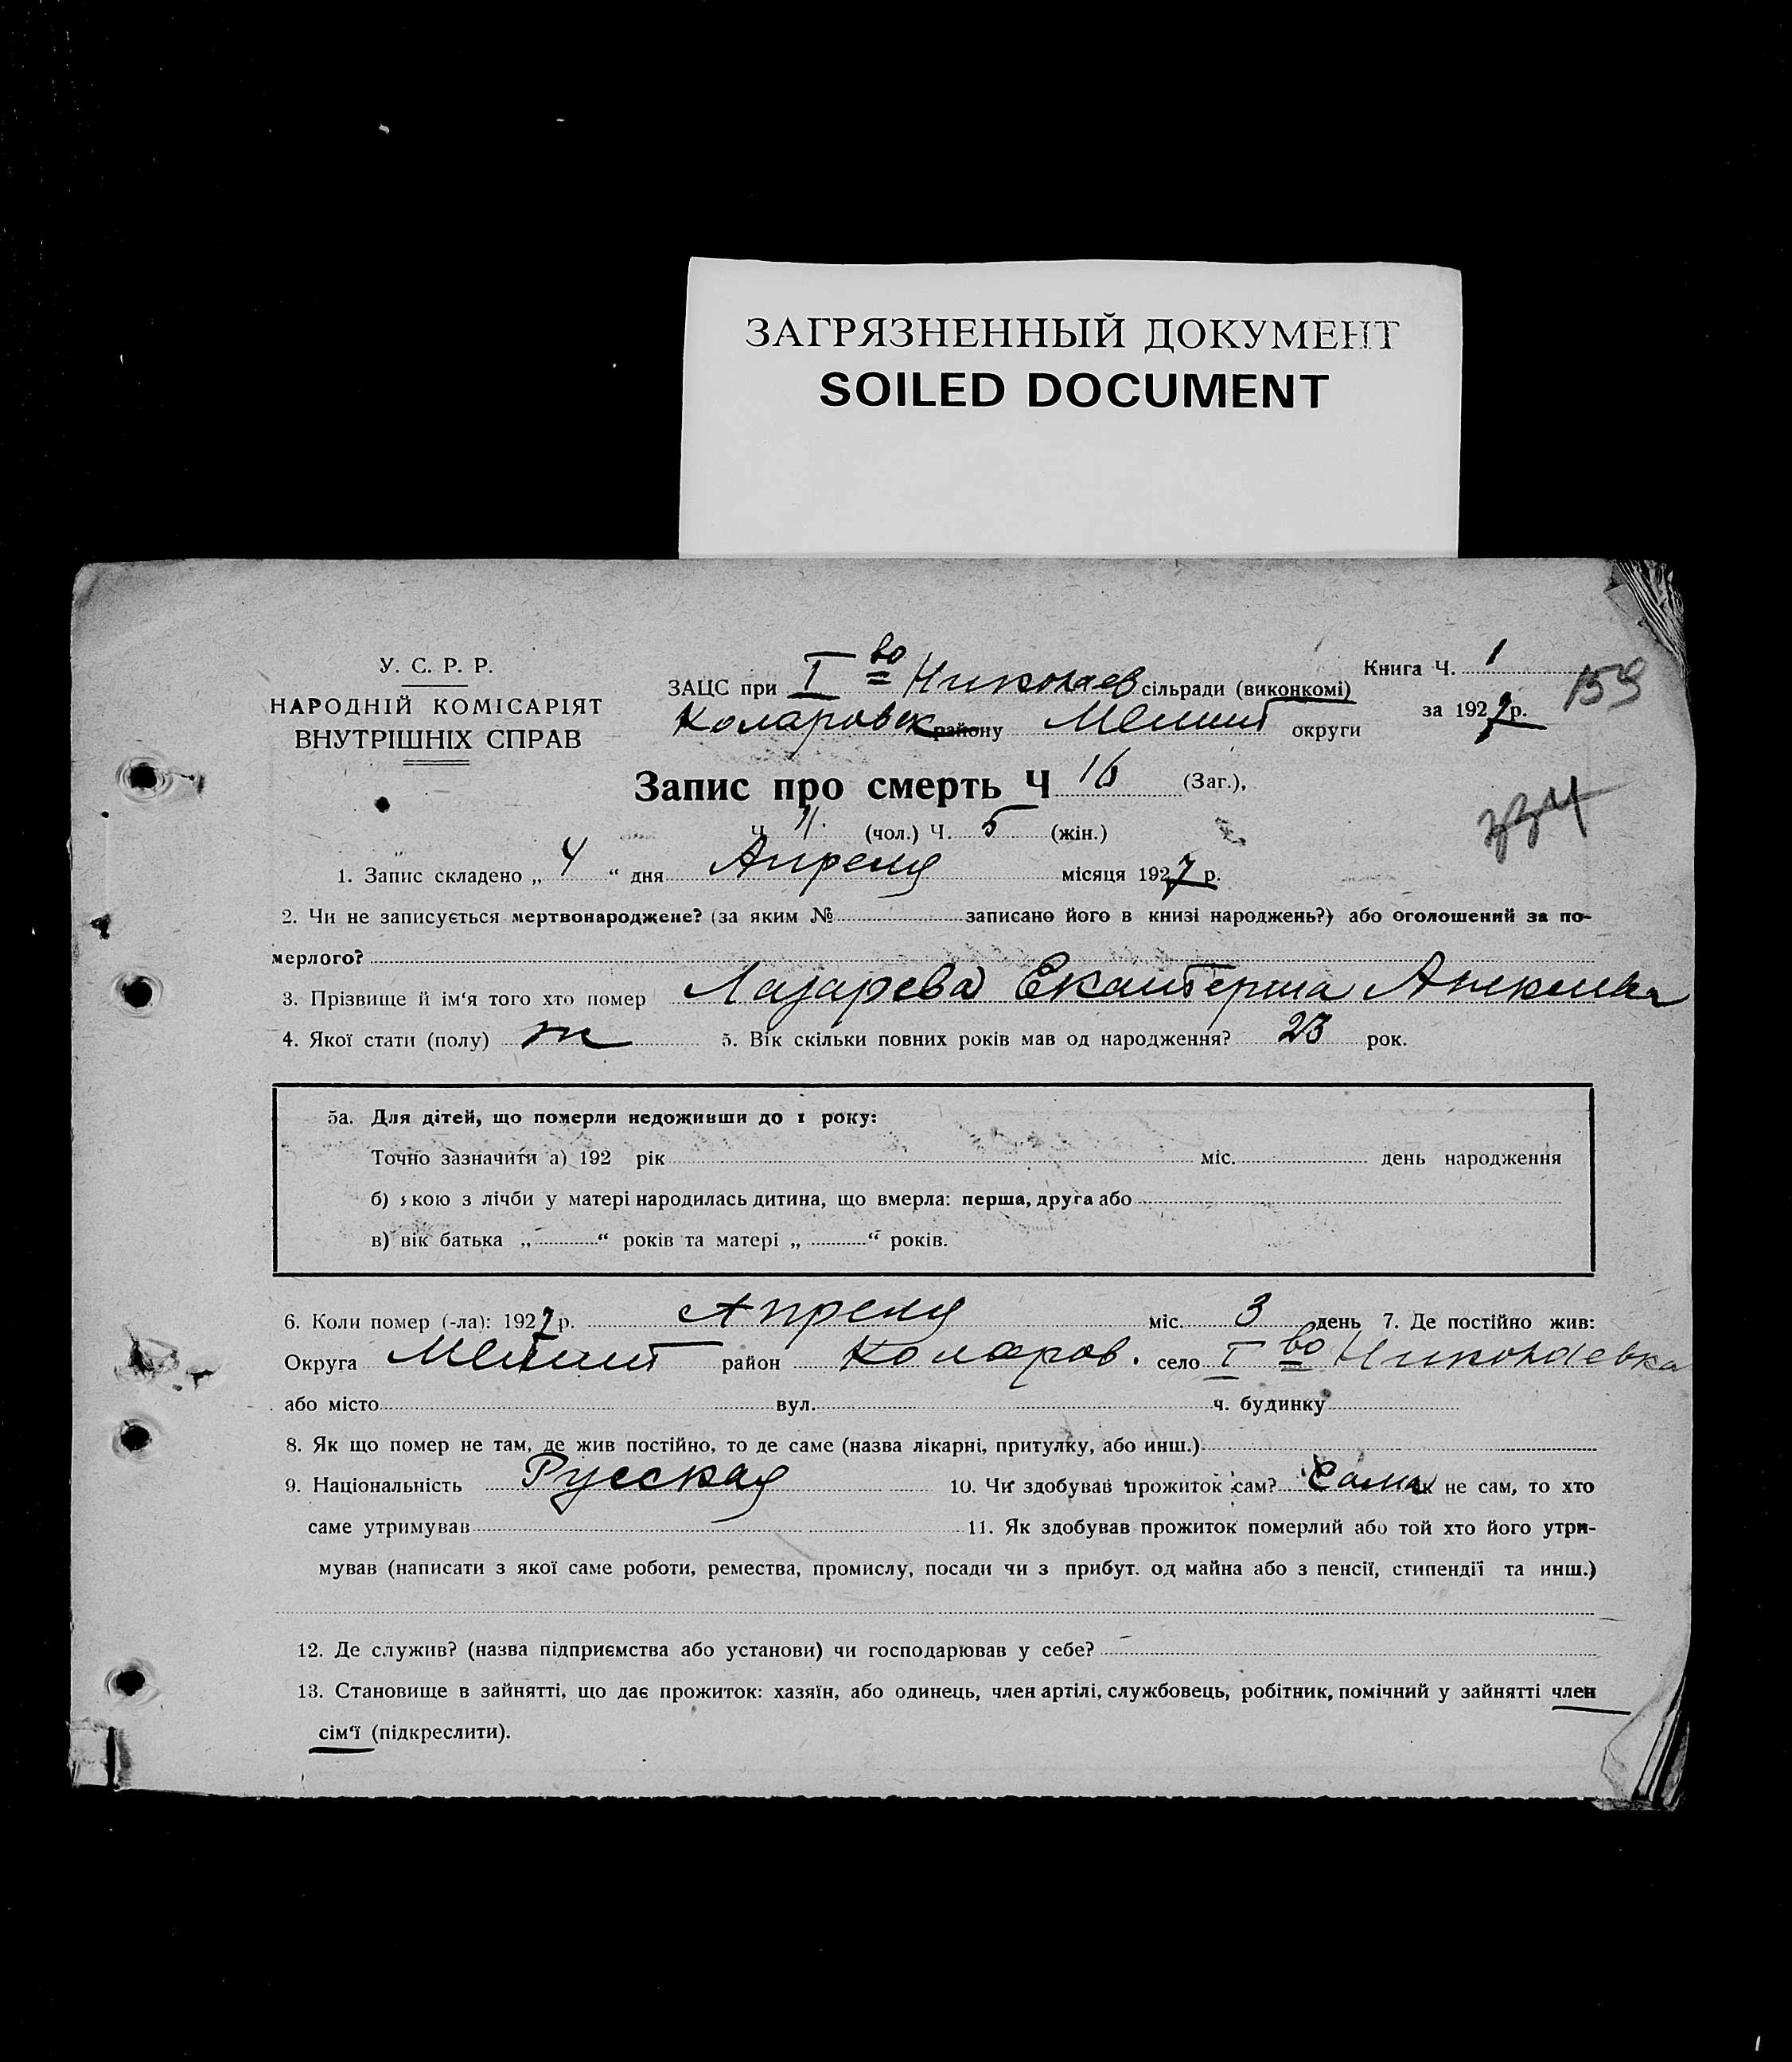 ЗАГРЯЗНЕННЫЙ ДОКУМЕНТ
SOILED DOCUMENT
У. С. Р. Р.
НАРОДНІЙ КОМІСАРІЯТ
ВНУТРІШНІХ СПРАВ
ЗАЦС при I во Николаев сільради (виконкомі)
Коларовск району Мелит округи
Книга Ч. 1
за 1927 р.
159
Запис про смерть Ч 16 (Заг.),
Ч 11. (чол.) Ч. 5 (жін.)
1. Запис складено „ 4 “ дня Апреля місяця 1927 р.
2. Чи не записується мертвонароджене? (за яким № записано його в книзі народжень?) або оголошений за по-
мерлого?
3. Прізвище й ім‘я того хто помер Лазарева Екатерина
4. Якої стати (полу) ж 5. Вік скільки повних років мав од народження? 23 рок.
5а. Для дітей, що померли недоживши до 1 року:
Точно зазначити а) 192 рік міс. день народження
б) якою з лічби у матері народилась дитина, що вмерла: перша, друга або
в) вік батька „ “ років та матері „ “ років.
6. Коли помер (-ла): 1927 р. Апреля міс. 3 день 7. Де постійно жив:
Округа Мелит район Коларов. село I во Николаевка
або місто вул. ч. будинку
8. Як що помер не там, де жив постійно, то де саме (назва лікарні, притулку, або инш.)
9. Національність Русская 10. Чи здобував прожиток сам? Сама не сам, то хто
саме утримував 11. Як здобував прожиток померлий або той хто його утри-
мував (написати з якої саме роботи, ремества, промислу, посади чи з прибут. од майна або з пенсії, стипендії та инш.)
12. Де служив? (назва підприємства або установи) чи господарював у себе?
13. Становище в зайнятті, що дає прожиток: хазяїн, або одинець, член артілі, службовець, робітник, помічний у зайнятті член
сім‘ї (підкреслити).